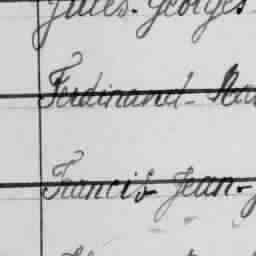 Jules-Georges
Ferdinand-
Francis-Jean-